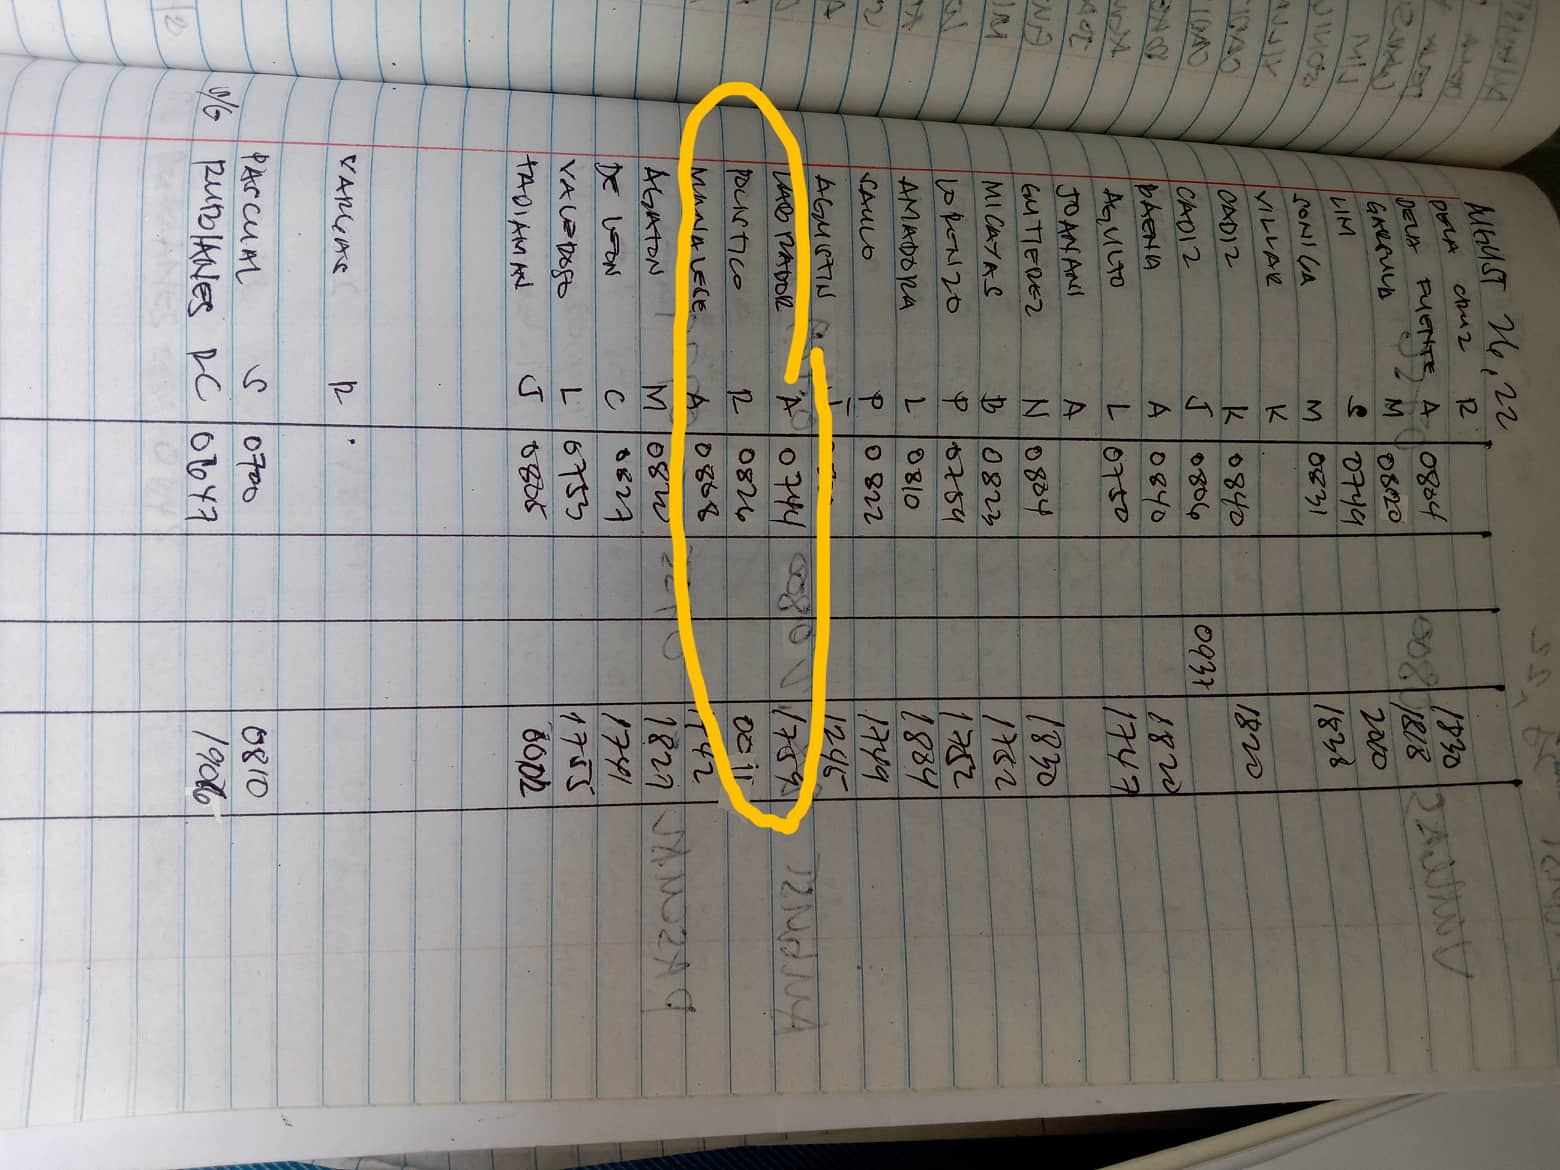 AUGUST 26, 22
DELA CRUZ R 1830
DELA FUENTE A 0804 1808
GARRUD M 0820 2000
LIM S 0749
SONIGA M 0831 1838
VILLAR K
CADIZ K 0840 1820
CADIZ J 0806 0937
BAENA A 0840 1820
AGULTO L 0750 1747
JOANANI A
GUTIEREZ N 0804 1830
MICAYAS B 0823 1752
LORENZO P 0754 1752
AMADORA L 0810 1884
SAULO P 0822 1749
AGUSTIN 1245
LABORADOR A 0744 1759
POLNTICO R 0826
A 0808
AGATON M 0820 1827
DE LEON C 0827 1741
VALEDOSO L 0753 1755
TADIAMAN J 0805
VARGAS R
PASCUAL S 0700 0810
S/G RUPDIANES RC 00647 1906